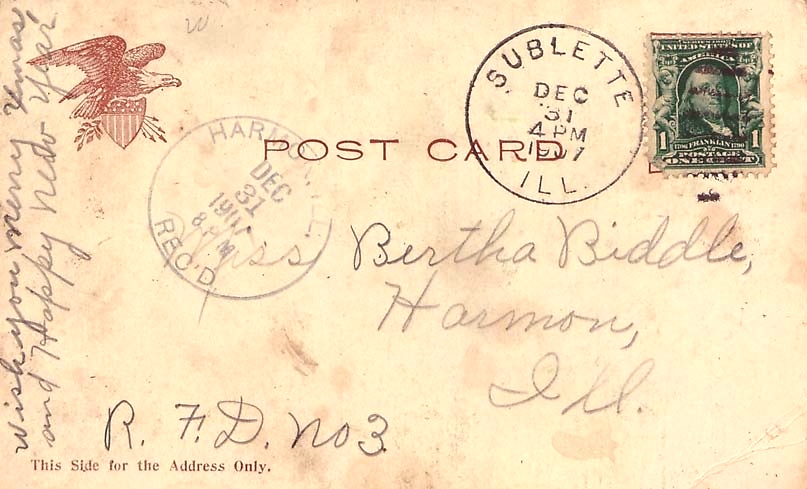 Wish you merry Xmas
and Happy New Year
W
POST CARD
SUBLETTE
DEC
31
4 PM
1907
ILL.
UNITED STATES OF
AMERICA
1 1
FRANKLIN
ONE CENT
HARMON, ILL.
DEC
31
8 PM
REC'D.
Miss Bertha Biddle,
Harmon,
Ill.
R. F. D. no 3
This Side for the Address Only.